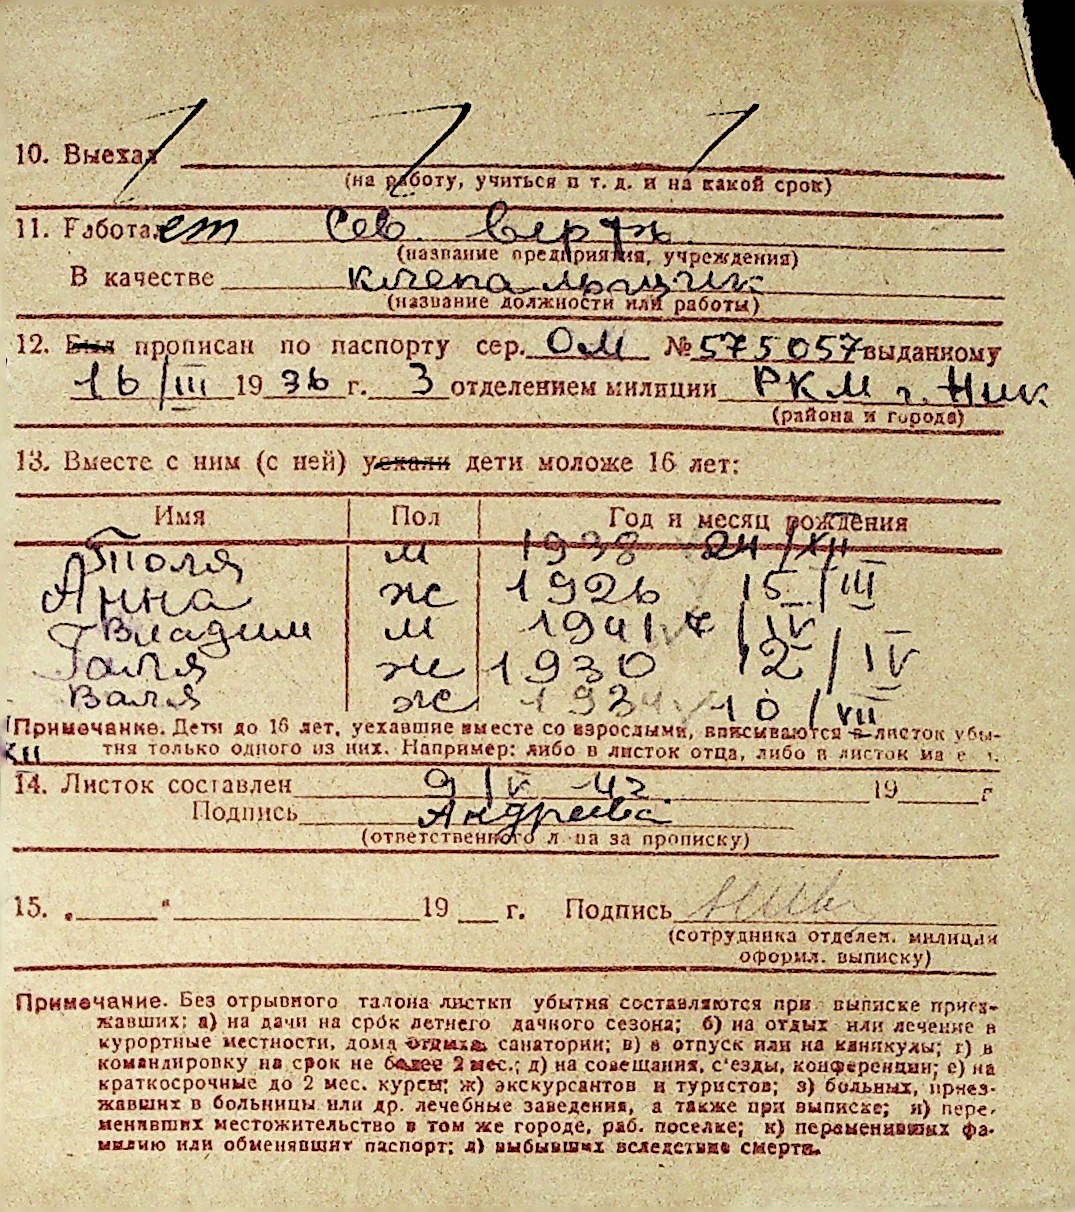 10. Выехал
(на работу, учиться и т. д. и на какой срок)
11. Работает Сев. верфь.
(название предприятия, учреждения)
В качестве клепальщик
(название должности или работы)
12. Был прописан по паспорту сер. ОМ № 575057 выданному
16/III 1936 г. 3 отделением милиции РКМ г. Ник
(района и города)
13. Вместе с ним (с ней) уехали дети моложе 16 лет:
Имя Пол Год и месяц рождения
Толя м 1938 24/XII
Анна ж 1926 15/III
Владим м 1941 7/IV
Галя ж 1930 12/IV
Валя ж 1934 10/VII
Примечание. Дети до 16 лет, уехавшие вместе со взрослыми, вписываются в листок убы-
XII тия только одного из них. Например: либо в листок отца, либо в листок ма е и.
14. Листок составлен 9/V-42. 19 г
Подпись Андреева
(ответственного лица за прописку)
15. „ “ 19 г. Подпись
(сотрудника отделен. милиции
оформл. выписку)
Примечание. Без отрывного талона листки убытия составляются при выписке приез-
жавших: а) на дачи на срок летнего дачного сезона; б) на отдых или лечение в
курортные местности, дома отдыха, санатории; в) в отпуск или на каникулы; г) в
командировку на срок не более 2 мес.; д) на совещания, с'езды, конференции; е) на
краткосрочные до 2 мес. курсы; ж) экскурсантов и туристов; з) больных, приез-
жавших в больницы или др. лечебные заведения, а также при выписке; и) пере-
менивших местожительство в том же городе, раб. поселке; к) переменивших фа-
милию или обменявшит паспорт; л) выбывших вследствие смерти.